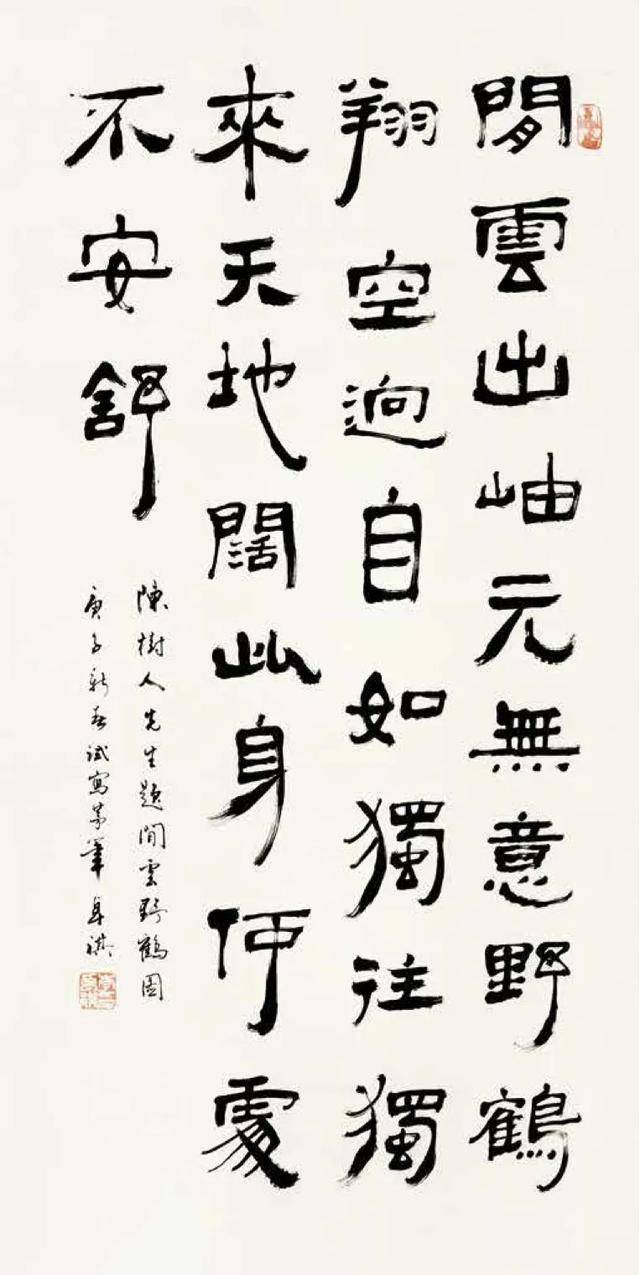 閒雲出岫元無意野鶴
翔空逈自如獨往獨
來天地闊此身何處
不安舒
陳樹人先生題閒雲野鶴圖
庚子新春試寫茅筆卓祺